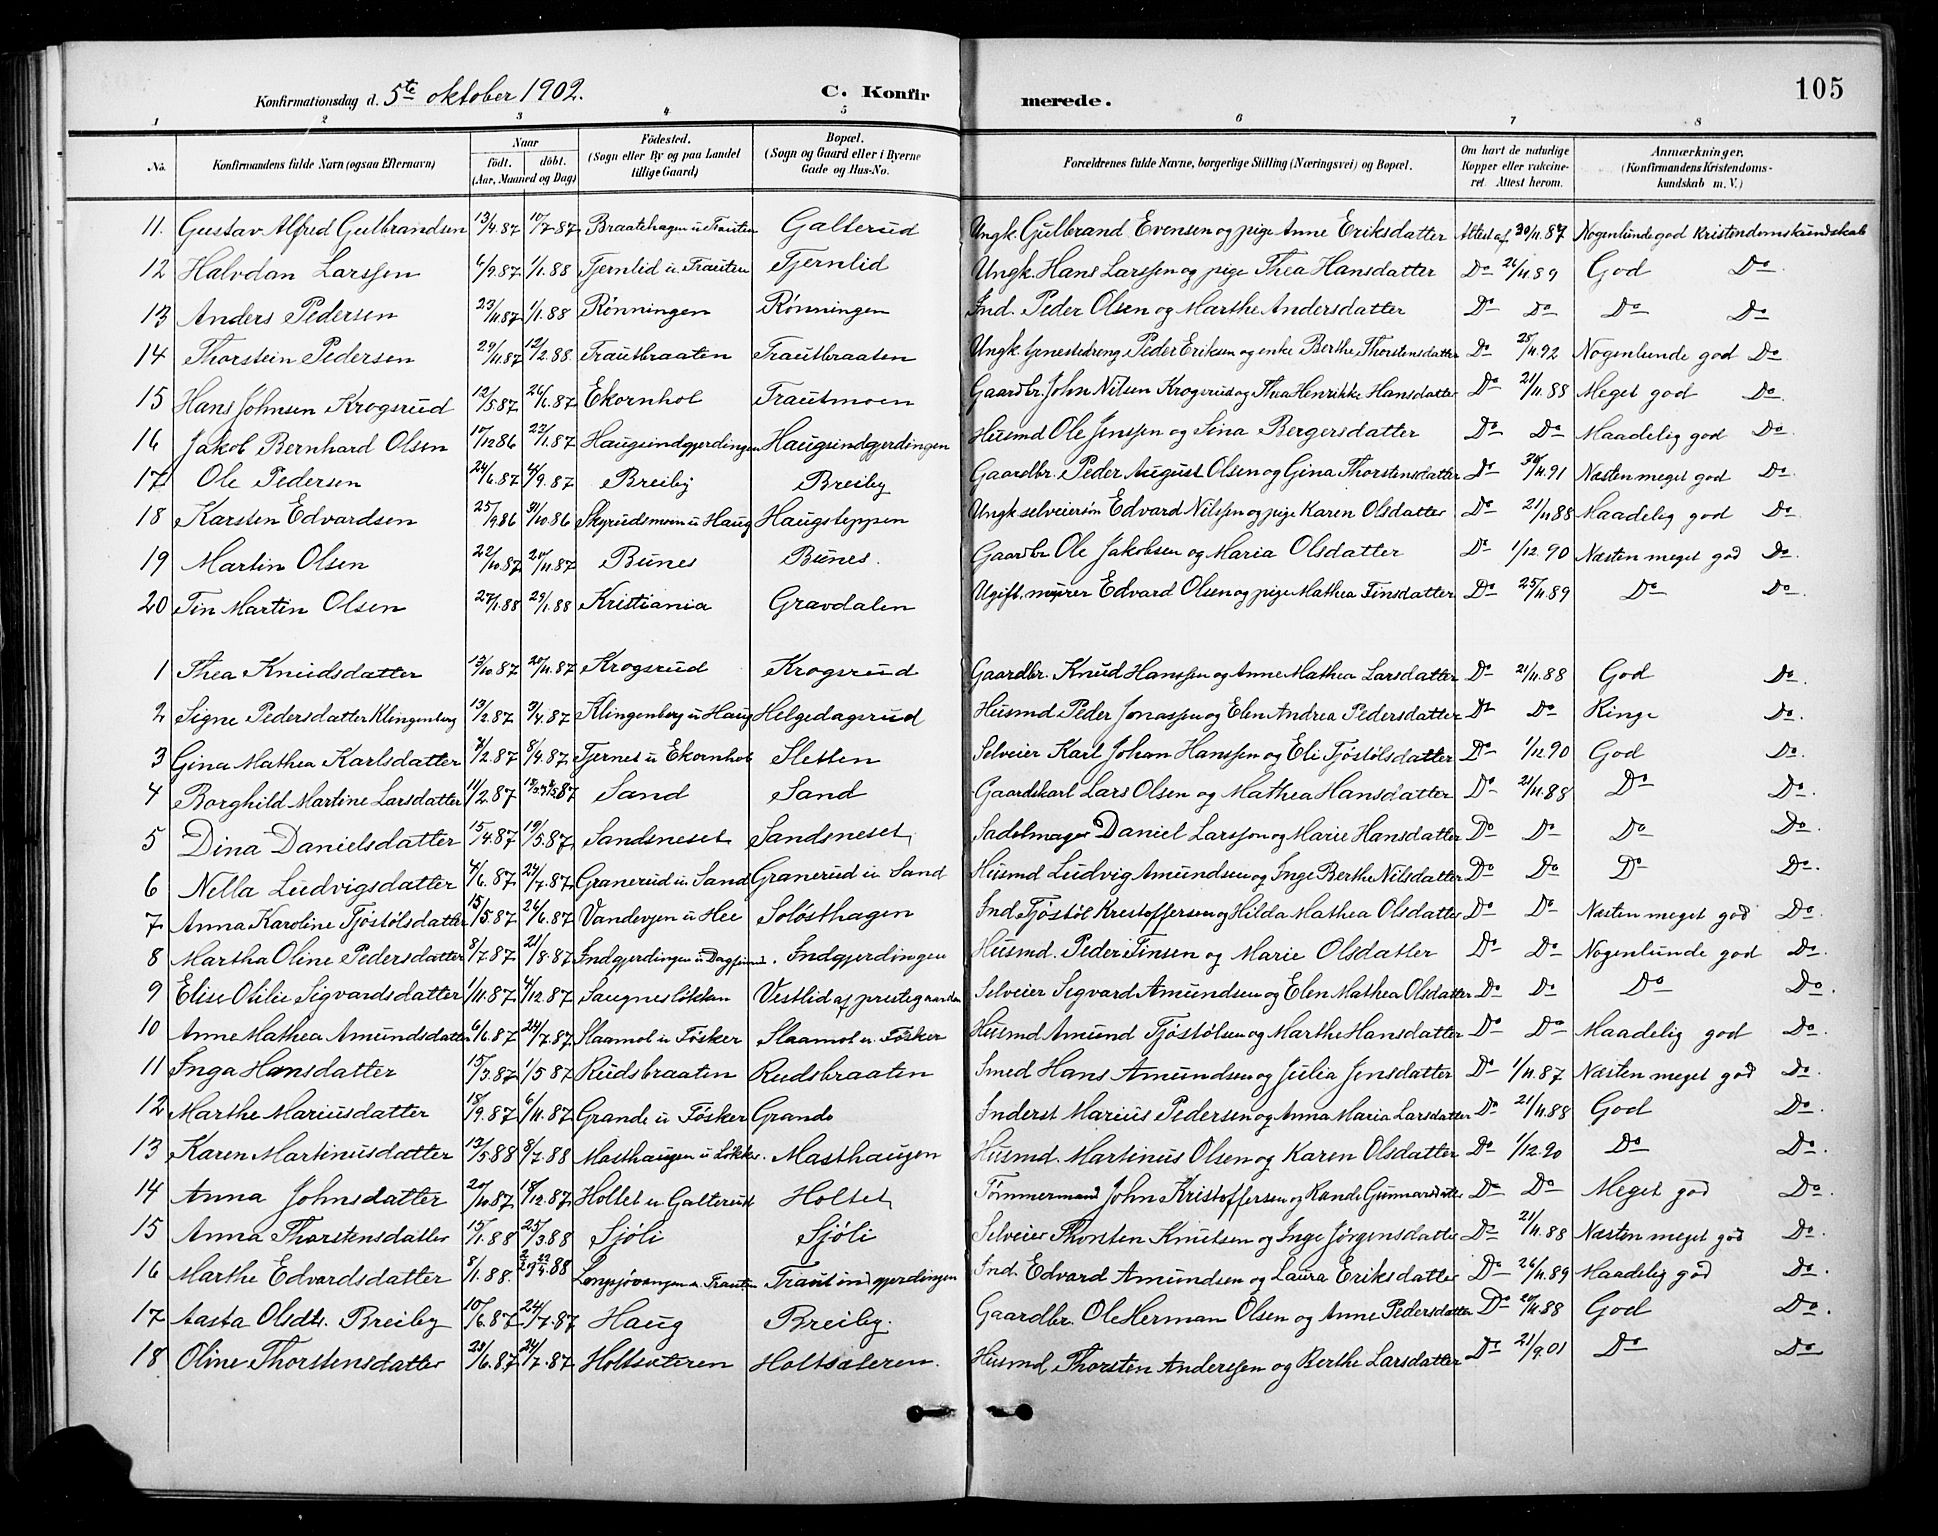 Konfirmationsdag d. 5te oktober 1902.
C. Konfirmerede.
105
1 2 3 4 5 6 7 8
No. Konfirmandens fulde Navn (ogsaa Efternavn) Naar födt. döbt. (Aar, Maaned og Dag) Födested. (Sogn eller By og paa Landet tillige Gaard) Bopæl. (Sogn og Gaard eller i Byerne Gade og Hus-No. Forældrenes fulde Navne, borgerlige Stilling (Næringsvei) og Bopæl. Om havt de naturlige Kopper eller vakcineret. Attest herom. Anmærkninger. (Konfirmandens Kristendomskundskab m. V.)
11. Gustav Alfred Gulbrandsen 13/4.87 10/7.87 Braatehagen u Trauten Galterud Ungk. Gulbrand Evensen og pige Anne Eriksdatter Attest af 30/11.87 Nogenlunde god Kristendomskundskab
12 Halvdan Larssen 6/9.87 1/1.88 Tjernlid u Trauten Tjernlid Ungk. Hans Larssen og pige Thea Hansdatter Do 26/11.89 God Do.
13 Anders Pedersen 23/11.87 1/1.88 Rønningen Rønningen Ind. Peder Olsen og Marthe Andersdatter Do Do Do Do
14 Thorstein Pedersen 29/11.87 12/2.88 Trautbraaten Trautbraaten Ungk. tjenestedreng Peder Eriksen og enke Berthe Thorstensdatter Do 25/11.92 Nogenlunde god Do
15 Hans Johnsen Krogsrud 12/5.87 26/6.87 Ekornhol Trautmoen Gaardbr. John Nilsen Krogsrud og Thea Henrikke Hansdatter Do 21/11.88 Meget god Do.
16 Jakob Bernhard Olsen 10/12 86 23/1.87 Haugsindgjerdingen Haugsindgjerdingen Husmd Ole Jenssen og Sina Bergersdatter Do Do Maadelig god Do.
17 Ole Pedersen 24/6.87 4/9.87 Breiby Breiby Gaardbr. Peder August Olsen og Gina Thorstensdatter Do 30/11.91 Næsten meget god Do.
18 Karsten Edvardsen 25/9 86 31/10.86 Skyrudsmoen u Haug Haugsteppen Ungk selveiersøn Edvard Nilssen og pige Karen Olsdatter Do 21/11 88 Maadelig god Do
19 Martin Olsen 22/10.87 20/11.87 Bunes Bunes. Gaardbr Ole Jakobsen og Maria Olsdatter Do 1/12.90 Næsten meget god Do.
20 Fin Martin Olsen 27/1.88 29/1.88 Kristiania Gravdalen Ugift. murer Edvard Olsen og pige Mathea Finsdatter Do 25/11.89 Do Do.
1 Thea Knudsdatter 13/10.87 20/11.87 Krogsrud Krogsrud Gaardbr. Knud Hanssen og Anne Mathea Larsdatter Do 21/11.88 God Do.
2 Signe Pedersdatter Klingenberg 13/2.87 9/4.87 Klingenberg u Haug Helgedagsrud Husmd Peder Jonassen og Elen Andrea Pedersdatter Do Do Ringe Do.
3 Gina Mathea Karlsdatter 7/2.87 8/4.87 Tjernet u Ekornhol Sletten Selveier Karl Johan Hanssen og Eli Tjøstølsdatter Do 1/12.90 God Do.
4 Borghild Martine Larsdatter 11/2.87 Sand Sand Gaardskarl Lars Olsen og Mathea Hansdatter Do 21/11.88 Do Do.
5 Dina Danielsdatter 15/4.87 19/5.87 Sandsneset Sandsneset. Sadelmager Daniel Larssen og Marie Hansdatter Do Do Do Do.
6 Nella Ludvigsdatter 4/6.87 24/7.87 Granerud u. Sand Granerud u Sand Husmd Ludvig Amundsen og Inge Berthe Nilsdatter Do Do Do Do.
7 Anna Karoline Tjøstølsdatter 15/5 87 26/6.87 Vandevjen u Hee Soløsthagen Ind Tjøstøl Krestoffersen og Hilda Mathea Olsdatter Do Do Næsten meget god Do.
8 Martha Oline Pedersdatter 8/7.87 21/8.87 Indgjerdingen u Indgjerdingen Husmd. Peder Finsen og Marie Olsdatter Do Do Nogenlunde god Do.
9 Elise Otilie Sigvardsdatter 1/11.87 4/12.87 Saugnesløkken Vestlid af prestegaarden Selveier Sigvard Amundsen og Elen Mathea Olsdatter Do Do Do Do.
10 Anne Mathea Amundsdatter 6/6.87 24/7.87 Slaamot u Føsker Slaamot u. Føsker Husmd Amund Tjøstølsen og Marthe Hansdatter Do Do Maadelig god Do.
11 Inga Hansdatter 15/3.87 1/5 87 Rudsbraaten Rudsbraaten Smed Hans Amundsen og Julia Jensdatter Do 1/11.87 Næsten meget god Do.
12 Marthe Mariusdatter 18/9.87 6/11.87 Grande u Føsker Grande Inderst Marius Pedersen og Anna Maria Larsdatter Do 21/11.88 God Do.
13 Karen Martinusdatter 13/5 88 8/7.88 Masthaugen u Løkke. Masthaugen Husmd. Martinus Olsen og Karen Olsdatter Do 1/12.90 Do Do.
14 Anna Johnsdatter 20/10.87 18/12.87 Holtet u Galterud Holtet Tømmermand John Kristoffersen og Rande Gunnarsdatter Do Do Meget god Do.
15 Anna Thorstensdatter 15/1.88 25/3.88 Sjøli Sjøli Selveier Thorsten Knutsen og Inge Jørgensdatter Do 21/11.88 Næsten meget god Do.
16 Marthe Edvardsdatter 8/1.88. Trautindgjerdingen Ind. Edvard Amundsen og Laura Eriksdatter Do 26/11.89 Maadelig god Do.
17 Aasta Olsdtr. Breiby 10/6.87 24/7.87 Haug Breiby. Gaardbr. Ole Herman Olsen og Anne Pedersdatter Do 20/11.88 God Do.
18 Oline Thorstensdatter 23/6.87 24/7.87 Holtsæteren Holtsæteren. Husmd Thorsten Anderssen og Berthe Larsdatter Do 21/9.01 Do Do